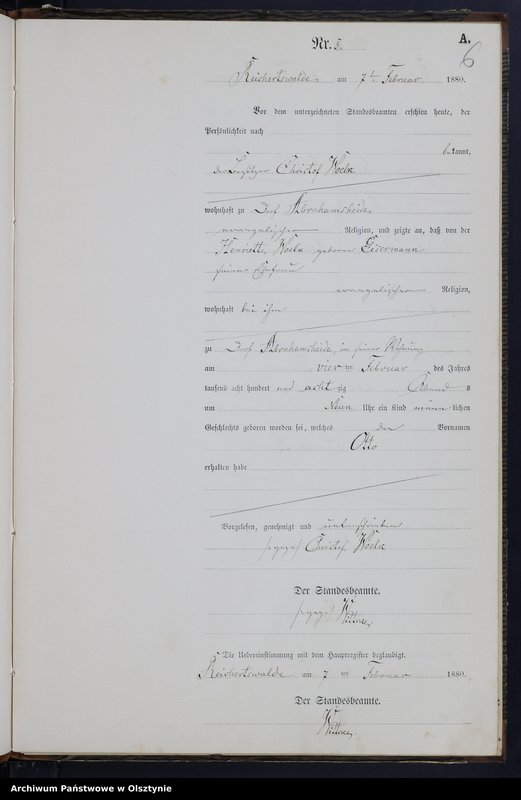 A.
Nr. 5.
6
Reichertswalde, am 7ten Februar 1880.
Vor dem unterzeichneten Standesbeamten erschien heute, der
Persönlichkeit nach
bekannt,
der Besitzer Christof Woelk
wohnhaft zu Dorf Abrahamsheide,
evangelischer Religion, und zeigte an, daß von der
Henriette Woelk geborene Eisermann
seiner Ehefrau
evangelischer Religion,
wohnhaft bei ihm
zu Dorf Abrahamsheide, in seiner Wohnung
am vier ten Februar des Jahres
tausend acht hundert und acht zig Abend s
um Neun Uhr ein Kind männ lichen
Geschlechts geboren worden sei, welches den Vornamen
Otto
erhalten habe
Vorgelesen, genehmigt und unterschrieben
(: gez :) Christof Woelk
Der Standesbeamte.
(: gez :)
Die Uebereinstimmung mit dem Hauptregister beglaubigt.
Reichertswalde am 7 ten Februar 1880.
Der Standesbeamte.
Archiwum Państwowe w Olsztynie